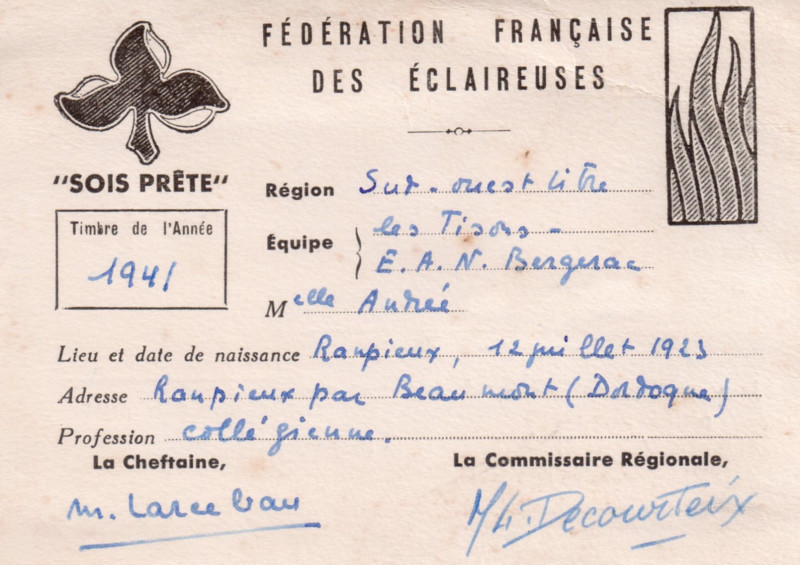 FÉDÉRATION FRANÇAISE
DES ÉCLAIREUSES
"SOIS PRÊTE"
Timbre de l'Année
1941
Région Sud-ouest libre
Équipe les Tisons -
E. A. N. Bergerac
Melle Andrée
Lieu et date de naissance Rampieux, 12 juillet 1923
Adresse Rampieux par Beaumont (Dordogne)
Profession collégienne.
La Cheftaine,
La Commissaire Régionale,
M. Decourteix